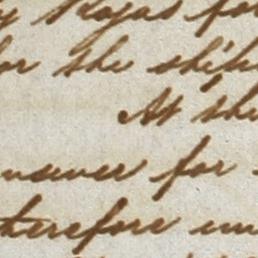 y Rojas for
for the ship
At the
answer for
therefore un